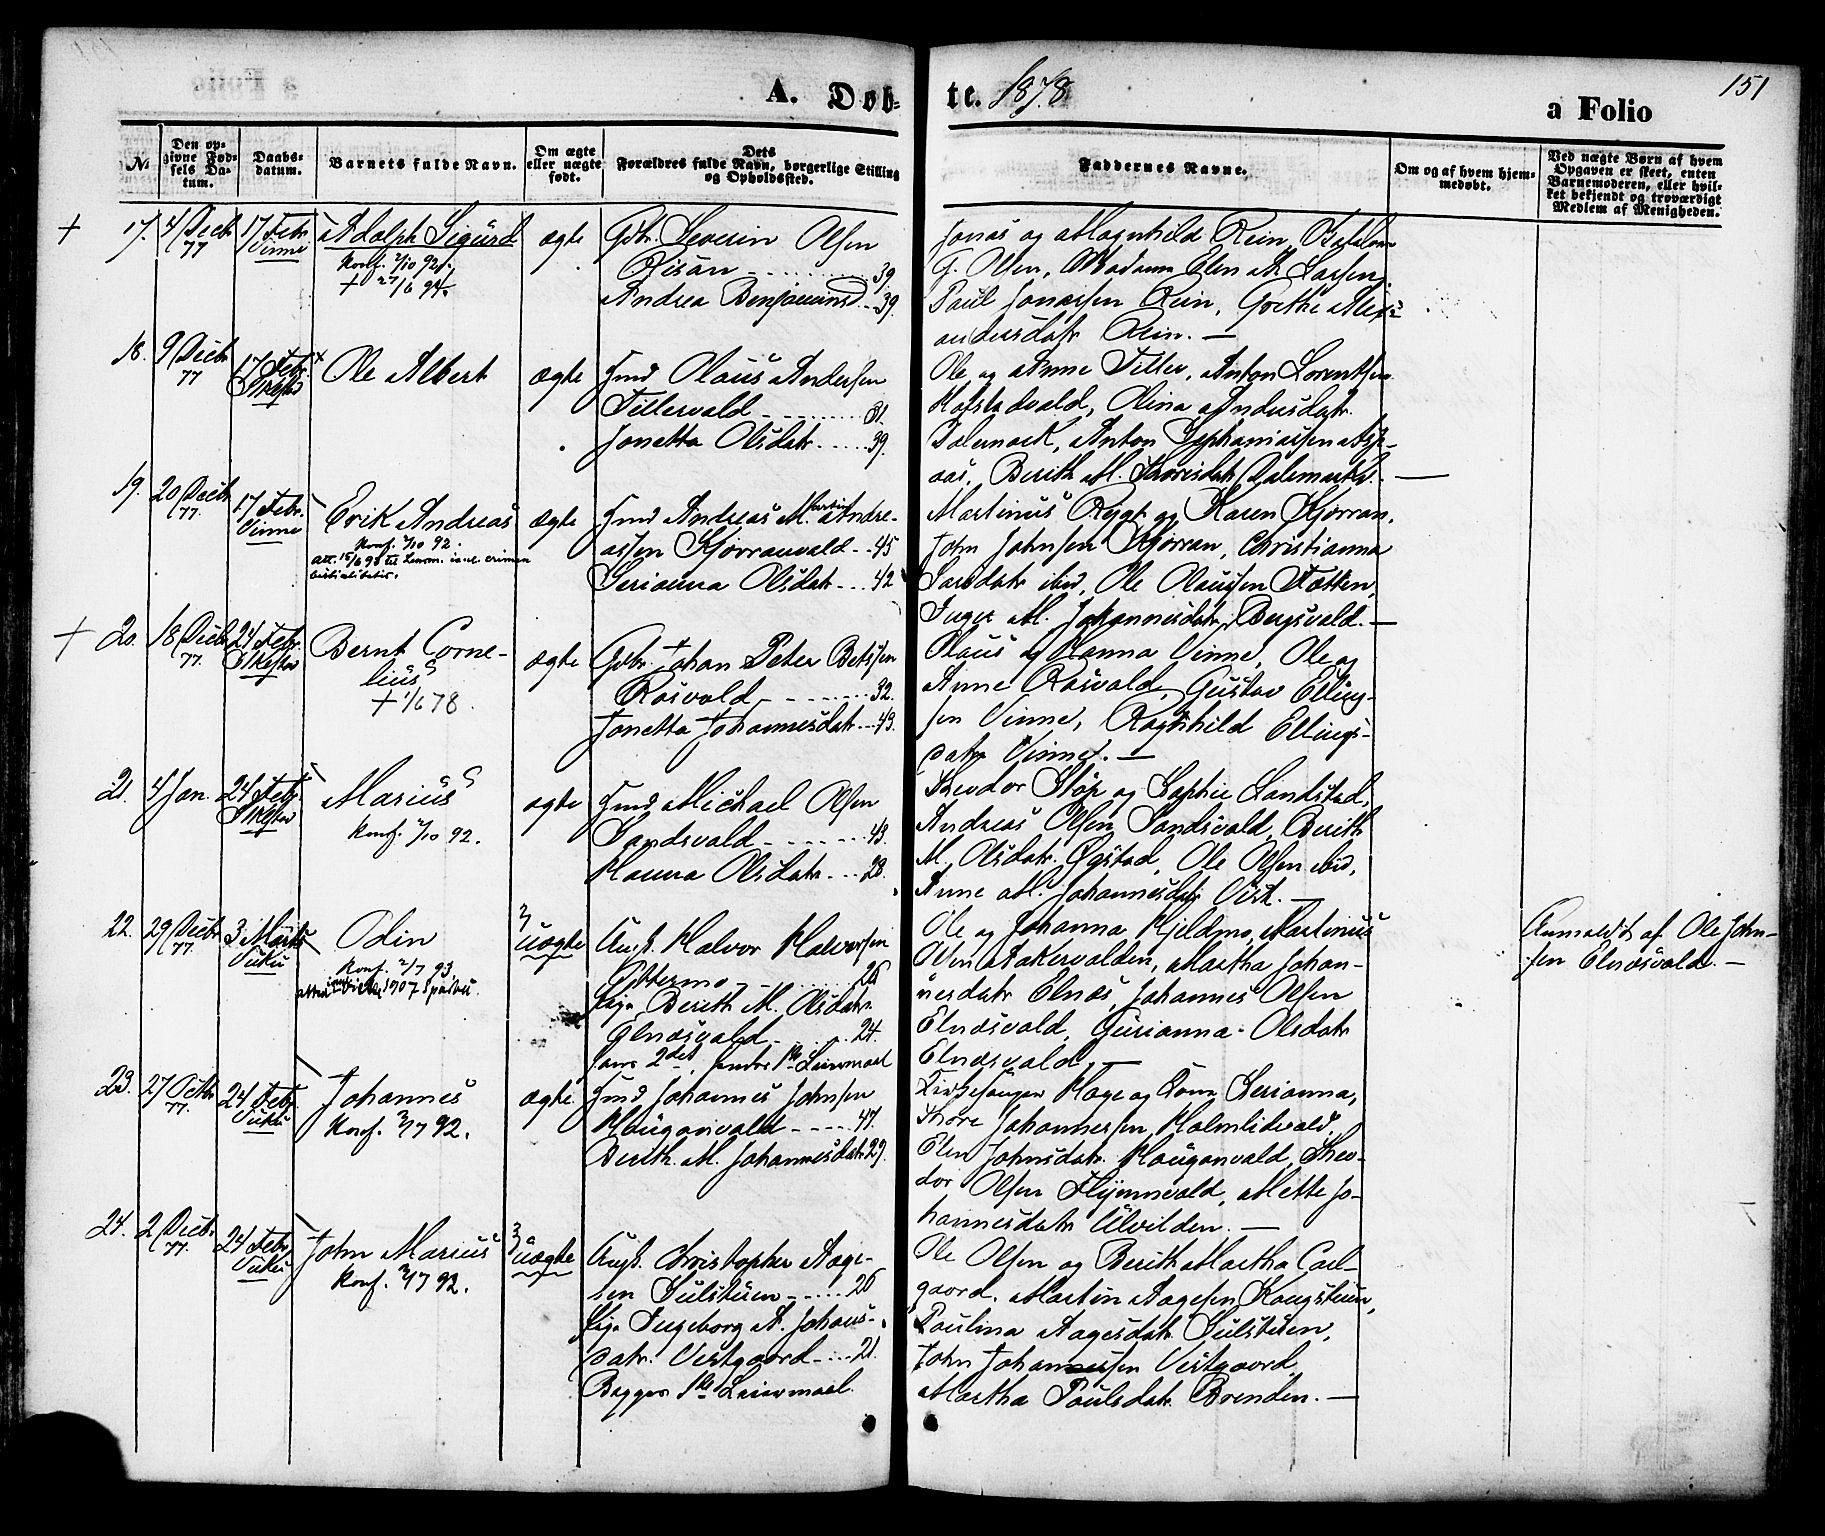 151
A. Døb-
te. 1878.
a Folio
No.
Den op-
givne Fød-
sels Da-
tum.
Daabs-
datum.
Barnets fulde Navn.
Om ægte
eller uægte
født.
Dets
Forældres fulde Navn, borgerlige Stilling
og Opholdssted.
Faddernes Navne.
Om og af hvem hjem-
medøbt.
Ved uægte Børn af hvem
Opgaven er skeet, enten
Barnemoderen, eller hvil-
ket bekjendt og troværdigt
Medlem af Menigheden.
+ 17. 4 Decbr 77
17 Febr. Vinne
Adolph Sigurd
Konf. 2/10 92.
+ 27/6 94.
ægte
Gdbr. Severin Olsen
Risan 39.
Andrea Benjaminsd. 39.
Jonas og Magnhild Rein,
G. Olsen, Madame Elen M. Larsen,
Paul Jonassen Rein, Grethe Alex-
andersdatr Rein. —
18. 9 Decbr 77
17 Febr.
Ole Albert
ægte
Hmd Olaus Andersen
Tillervald 31.
Jonetta Olsdatr 39.
Ole og Anne Tiller, Anton Lorentsen
Hofstadvald, Olina Andersdatr.
Dalemark, Anton Zephaniassen Asp-
aas, Berith M. Dalemarksv. —
19. 20 Decbr 77.
17 Febr. Vinne
Erik Andreas
Konf. 2/10 92.
ægte
Hmd Andreas M. Andre-
assen Kjørranvald 45
Serianna Olsdatr 42
Martinus Rygg og Karen Kjørran,
John Johnsen Kjørran, Christianna
Larsdatr ibid, Ole Olaussen Tætten,
Inger M. Johannesdatr Bergsvald. —
+ 20. 18 Decbr 77.
24 Febr.
Bernt Corne-
lius
+ 1/6 78.
ægte
Gdbr. Johan Peter Betssen
Rosvold 32.
Jonetta Johannesdatr 43.
Olaus og Hanna Vinne, Ole og
Anne Rosvold, Gustav Elling-
sen Vinne, Ragnhild Ellings-
datr Vinne. —
21. 4 Jan.
24 Febr.
Marius
Konf. 2/10 92.
ægte
Hmd Michael Olsen
Sandsvald 43.
Hanna Olsdatr 28.
Theodor Støp og Sophie Landstad,
Andreas Olsen Sandsvald, Berith
M. Olsdatr. Øgstad, Ole Olsen ibid,
Anne M. Johannesdatr Vist. —
22. 29 Decbr 77.
3 Marts Vuku
Odin
Konf. 2/7 93,
uægte
Ungk. Halvor Halvorsen
Østermo 26
Pige Berith M. Olsdatr.
Elnæsvald 24.
hans 2det, hendes 1ste Leiermaal
Ole og Johanna Hjeldmo, Martinus
Olsen Aakervolden, Martha Johan-
nesdatr Elnæs, Johannes Olsen
Elnæsvald, Gurianna Olsdatr
Elnæsvald. —
Anmeldt af Ole John-
sen Elnæsvald. —
23. 27 Octbr 77.
24 Febr. Vuku
Johannes
Konf. 2/7 92.
ægte
Hmd Johannes Johnsen
Hauganvald 47.
Berith M. Johannesdatr 29.
Kirkesanger Hage og Kone Serianna,
Thore Johannessen Holmlidvald,
Elen Johnsdatr. Hauganvald, Theo-
dor Olsen Flynnvald, Mette Jo-
hannesdatr Ulvilden. —
24. 2 Decbr 77.
24 Febr. Vuku
John Marius
Konf. 2/7 92.
uægte
Ungk. Christopher Aage-
sen Sulstuen 26
Pige Ingeborg A. Johans-
datr. Vestgaard 21.
Begges 1ste Leiermaal.
Ole Olsen og Berith Martha Carl-
gaard, Martin Aagesen Kongstuen,
Paulina Aagesdatr Sulstuen,
John Johannessen Vestgaard,
Martha Poulsdatr Brenden. —